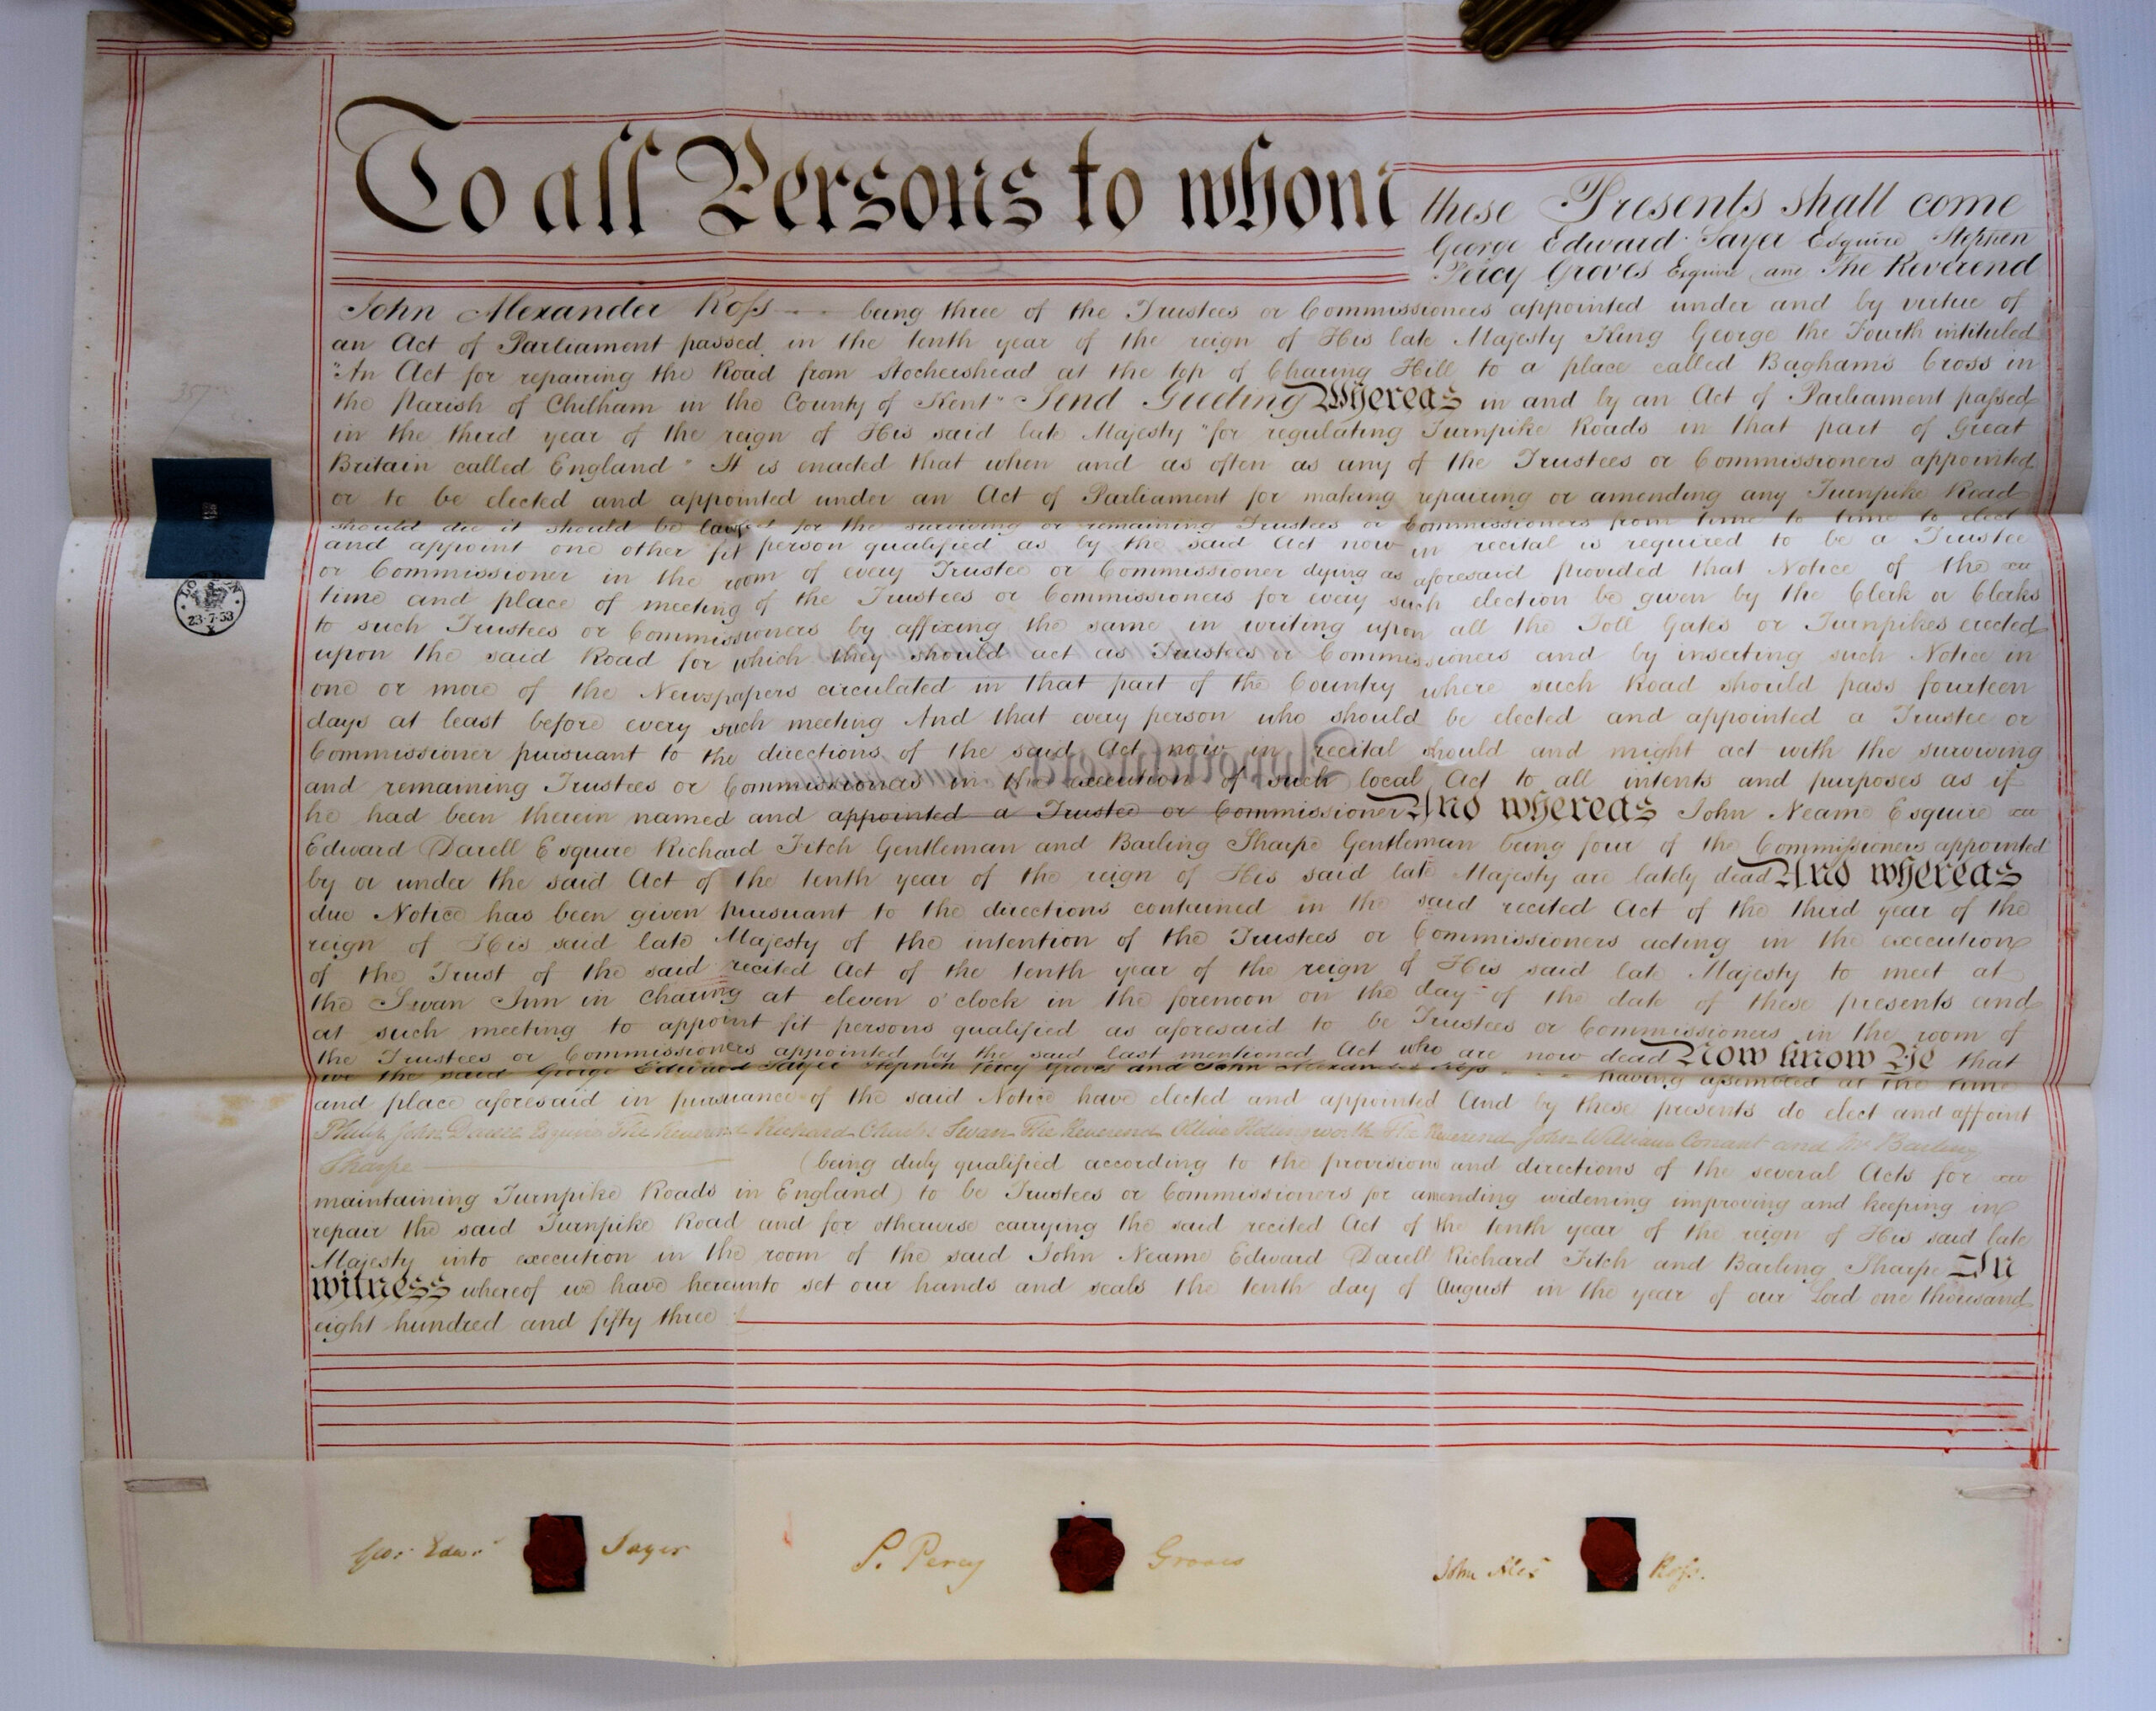 To all Persons to whom these Presents shall come
George Edward Sayer Esquire Stephen
Percy Groves Esquire and The Reverend
John Alexander Ross being three of the Trustees or Commissioners appointed under and by virtue of
an Act of Parliament passed in the tenth year of the reign of His late Majesty King George the Fourth intituled
"An Act for repairing the Road from Stockershead at the top of Charing Hill to a place called Bagham's Cross in
the Parish of Chilham in the County of Kent" Send Greeting Whereas in and by an Act of Parliament passed
in the third year of the reign of His said late Majesty "for regulating Turnpike Roads in that part of Great
Britain called England" It is enacted that when and as often as any of the Trustees or Commissioners appointed
or to be elected and appointed under an Act of Parliament for making repairing or amending any Turnpike Road
should die it should be lawful for the surviving or remaining Trustees or Commissioners from time to time to elect
and appoint one other fit person qualified as by the said Act now in recital is required to be a Trustee
or Commissioner in the room of every Trustee or Commissioner dying as aforesaid provided that Notice of the
time and place of meeting of the Trustees or Commissioners for every such election be given by the Clerk or Clerks
to such Trustees or Commissioners by affixing the same in writing upon all the Toll Gates or Turnpikes erected
upon the said Road for which they should act as Trustees or Commissioners and by inserting such Notice in
one or more of the Newspapers circulated in that part of the Country where such Road should pass fourteen
days at least before every such meeting And that every person who should be elected and appointed a Trustee or
Commissioner pursuant to the directions of the said Act now in recital should and might act with the surviving
and remaining Trustees or Commissioners in the execution of such local Act to all intents and purposes as if
he had been therein named and appointed a Trustee or Commissioner And whereas John Neame Esquire
Edward Darell Esquire Richard Fitch Gentleman and Barling Sharpe Gentleman being four of the Commissioners appointed
by or under the said Act of the tenth year of the reign of His said late Majesty are lately dead And whereas
due Notice has been given pursuant to the directions contained in the said recited Act of the third year of the
reign of His said late Majesty of the intention of the Trustees or Commissioners acting in the execution
of the Trust of the said recited Act of the tenth year of the reign of His said late Majesty to meet at
the Swan Inn in Charing at eleven o'clock in the forenoon on the day of the date of these presents and
at such meeting to appoint fit persons qualified as aforesaid to be Trustees or Commissioners in the room of
the Trustees or Commissioners appointed by the said last mentioned Act who are now dead Now know Ye that
we the said George Edward Sayer Stephen Percy Groves and John Alexander Ross having assembled at the time
and place aforesaid in pursuance of the said Notice have elected and appointed And by these presents do elect and appoint
Philip John Darell Esquire The Reverend Richard Charles Swan The Reverend Hollingworth The Reverend John William Conant and Mr. Barling
Sharpe (being duly qualified according to the provisions and directions of the several Acts for
maintaining Turnpike Roads in England) to be Trustees or Commissioners for amending widening improving and keeping in
repair the said Turnpike Road and for otherwise carrying the said recited Act of the tenth year of the reign of His said late
Majesty into execution in the room of the said John Neame Edward Darell Richard Fitch and Barling Sharpe In
witness whereof we have hereunto set our hands and seals the tenth day of August in the year of our Lord one thousand
eight hundred and fifty three
LONDON
23.7.53
X
Geo: Edwd. Sayer
S. Percy Groves
John Alex Ross.